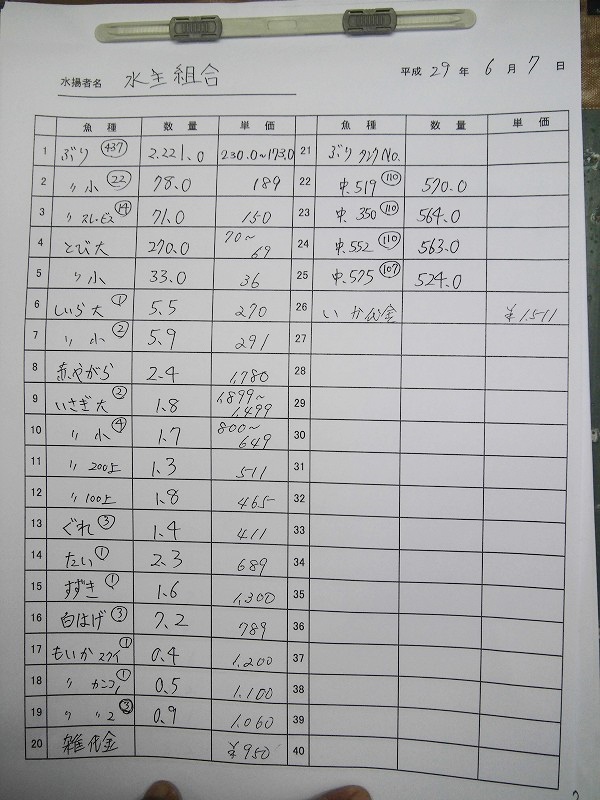 水揚者名 水主組合 平成 29 年 6 月 7 日
魚種 数量 単価 魚種 数量 単価
1 ぶり 437 2.221.0 230.0~173.0 21 ぶり タンクNo.
2 〃 小 22 78.0 189 22 中.519 110 570.0
3 〃 スレ・ビス 14 71.0 150 23 中.350 110 564.0
4 とび大 270.0 70~69 24 中.552 110 563.0
5 〃 小 33.0 36 25 中.575 107 524.0
6 しいら大 1 5.5 270 26 いか代金 ¥1.511
7 〃 小 2 5.9 291 27
8 赤やがら 2.4 1,780 28
9 いさぎ大 2 1.8 1,899~1,499 29
10 〃 小 4 1.7 800~649 30
11 〃 200上 1.3 511 31
12 〃 100上 1.8 465 32
13 ぐれ 3 1.4 411 33
14 たい 1 2.3 689 34
15 すずき 1 1.6 1,300 35
16 白はげ 3 7.2 789 36
17 もいか スクイ 1 0.4 1,200 37
18 〃 カンコ 1 0.5 1,100 38
19 〃 〃 2 3 0.9 1,060 39
20 雑代金 ¥950 40